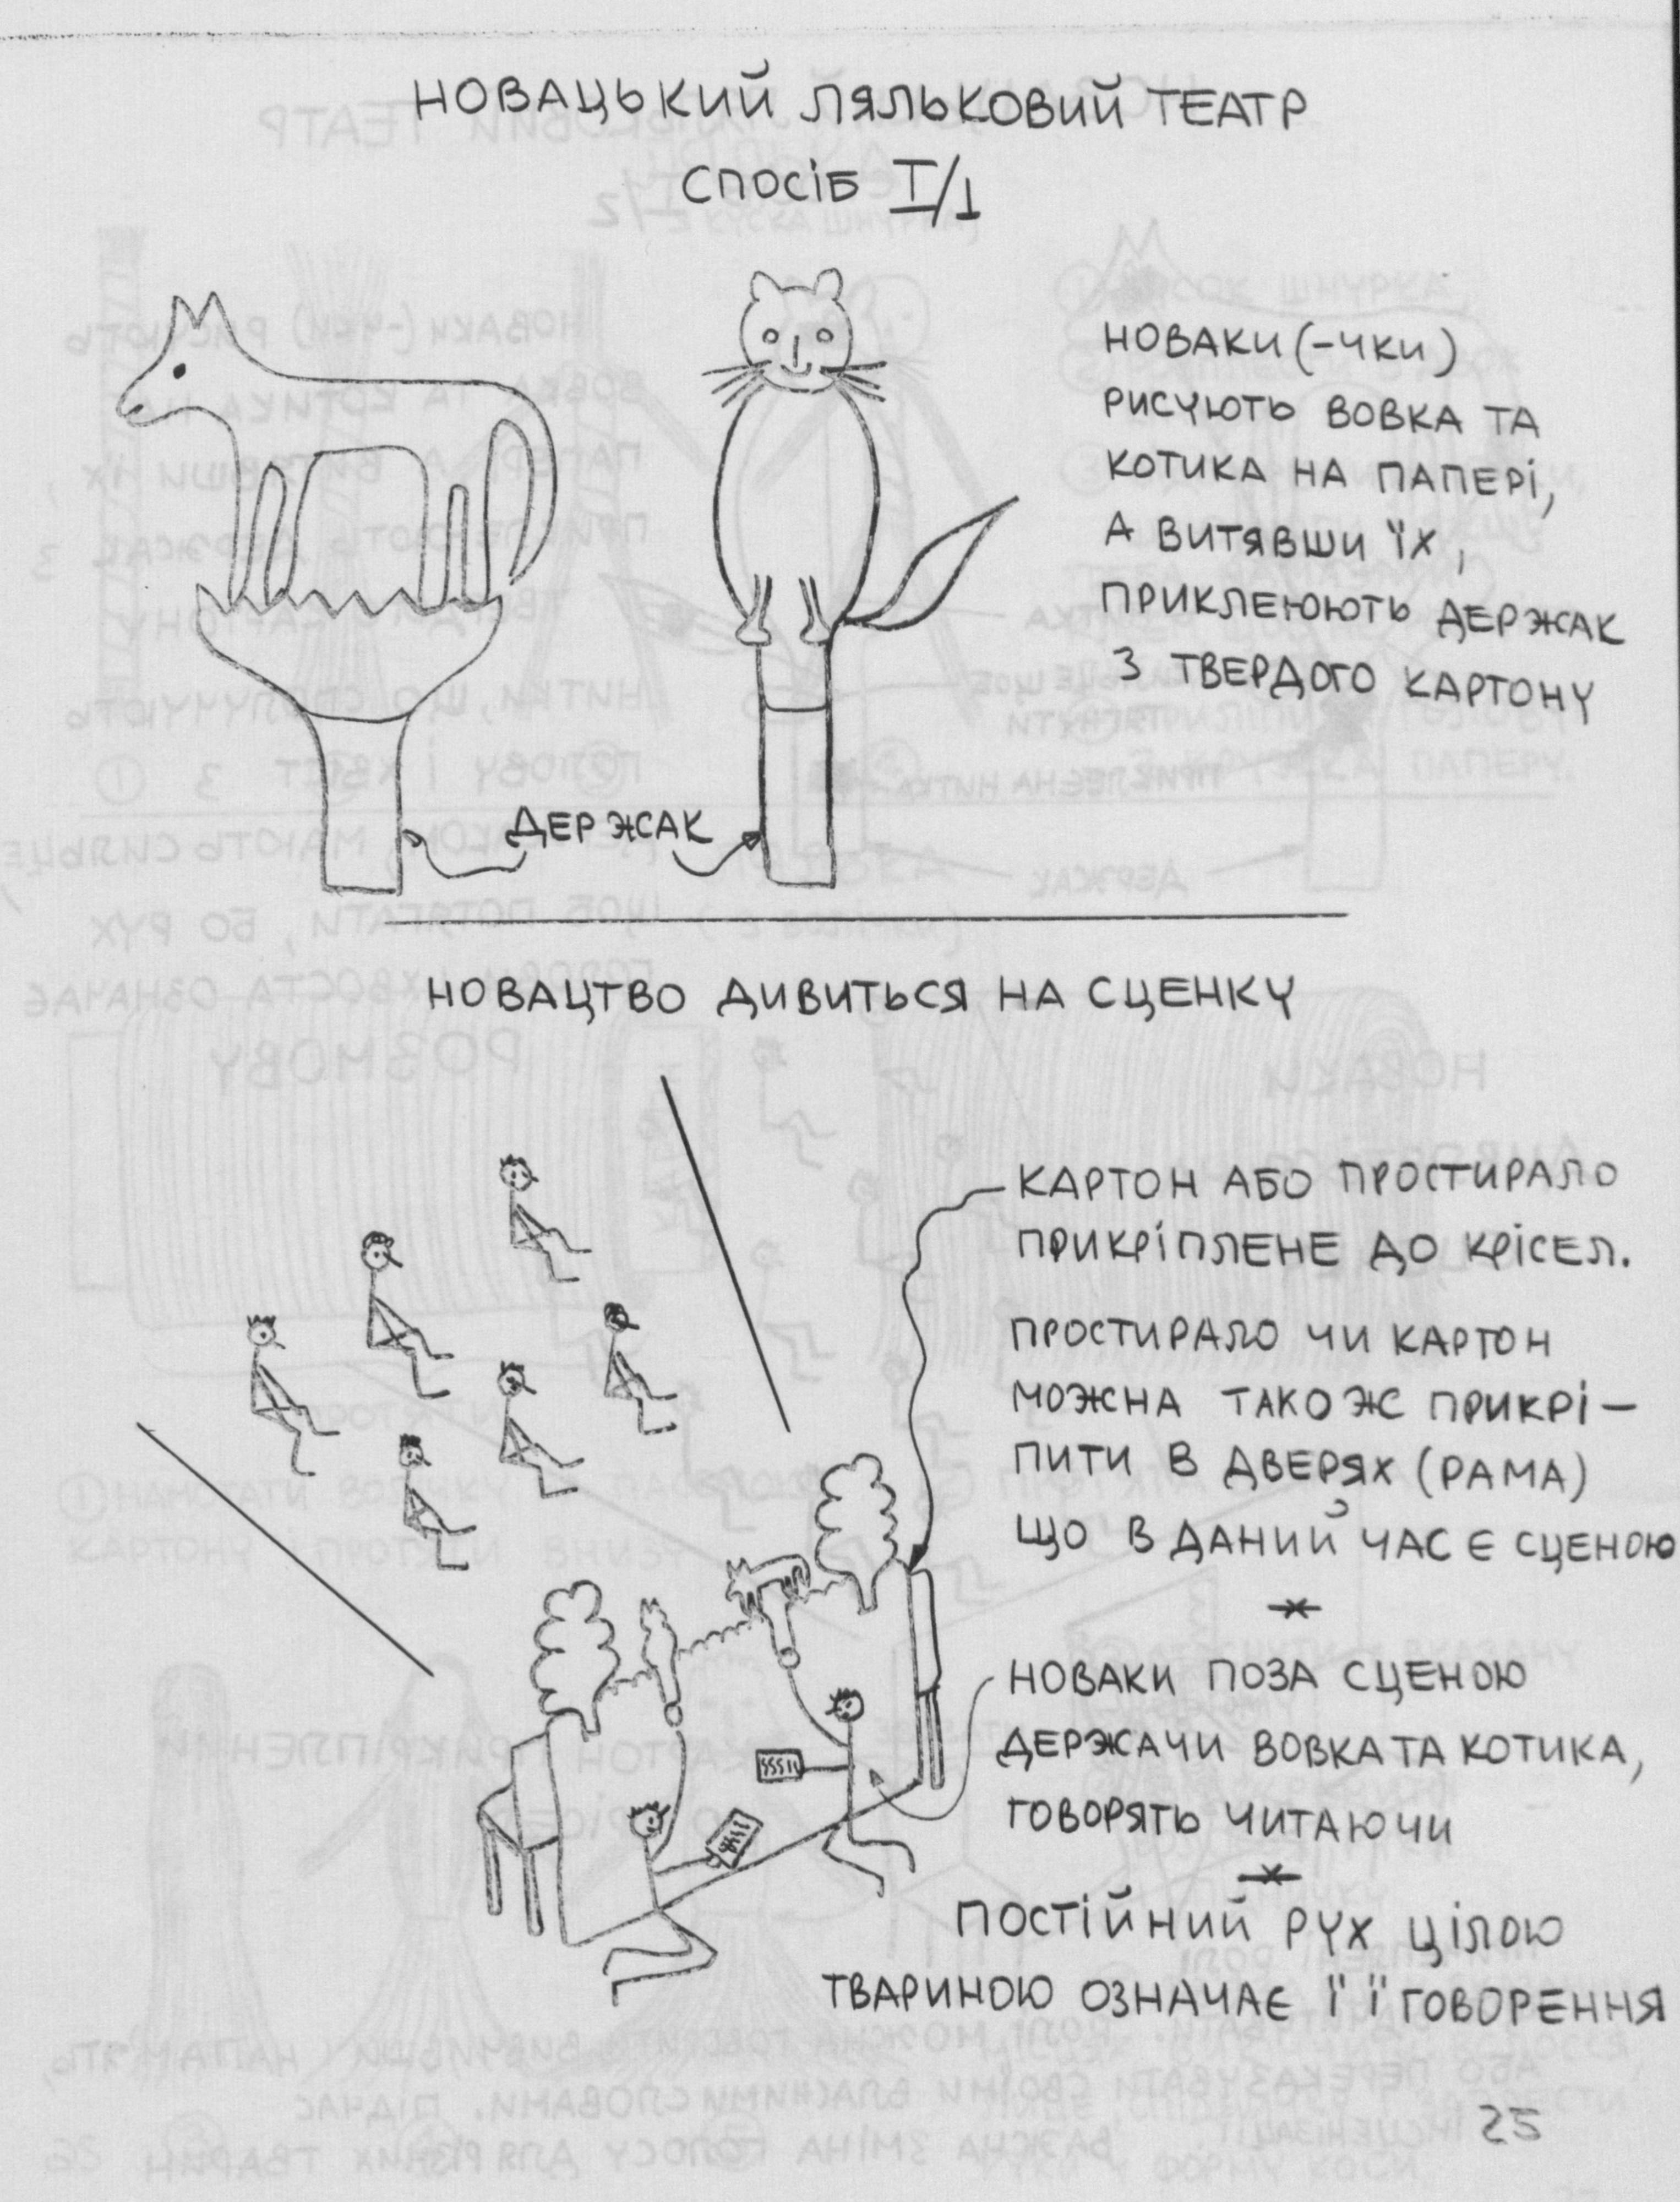 НОВАЦЬКИЙ ЛЯЛЬКОВИЙ ТЕАТР
СПОСІБ I/1
НОВАКИ (-ЧКИ)
РИСУЮТЬ ВОВКА ТА
КОТИКА НА ПАПЕРІ,
А ВИТЯВШИ ЇХ,
ПРИКЛЕЮЮТЬ ДЕРЖАК
З ТВЕРДОГО КАРТОНУ
ДЕРЖАК
НОВАЦТВО ДИВИТЬСЯ НА СЦЕНКУ
КАРТОН АБО ПРОСТИРАЛО
ПРИКРІПЛЕНЕ ДО КРІСЕЛ.
ПРОСТИРАЛО ЧИ КАРТОН
МОЖНА ТАКОЖ ПРИКРІ-
ПИТИ В ДВЕРЯХ (РАМА)
ЩО В ДАНИЙ ЧАС Є СЦЕНОЮ
НОВАКИ ПОЗА СЦЕНОЮ
ДЕРЖАЧИ ВОВКА ТА КОТИКА,
ГОВОРЯТЬ ЧИТАЮЧИ
ПОСТІЙНИЙ РУХ ЦІЛОЮ
ТВАРИНОЮ ОЗНАЧАЄ ЇЇ ГОВОРЕННЯ
25